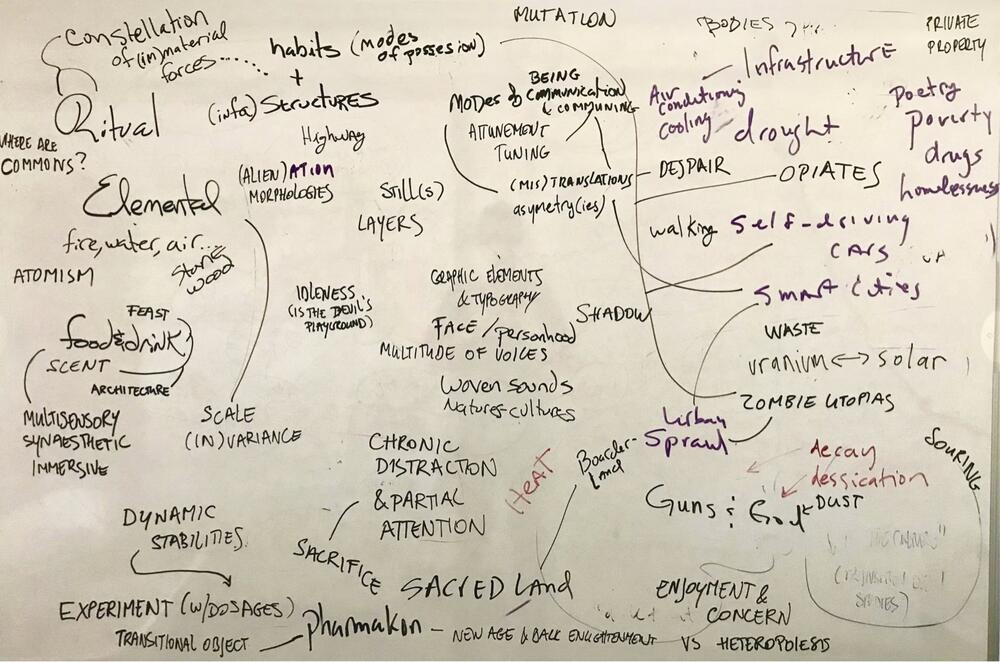 Constellation
of (in)material
forces......
habits (modes
of possesion)
+
(infra) Structures
Highway
MUTATION
BODIES
PRIVATE
PROPERTY
Ritual
WHERE ARE
COMMONS?
MODES of
BEING
Communication
& COMMUNING
ATTUNEMENT
TUNING
Infrastructure
Air
conditioning
cooling
drought
Poetry
poverty
drugs
homelessness
Elemental
fire, water, air...
stones
wood
ATOMISM
(ALIEN)ATION
MORPHOLOGIES
Still(s)
LAYERS
(MIS)TRANSLATIONS
asymetry(ies)
DESPAIR
OPIATES
walking
Self-driving
CARS
Smart Cities
FEAST
food & drink
SCENT
ARCHITECTURE
MULTISENSORY
SYNAESTHETIC
IMMERSIVE
IDLENESS
(IS THE DEVIL'S
PLAYGROUND)
GRAPHIC ELEMENTS
& TYPOGRAPHY
FACE / personhood
MULTITUDE OF VOICES
Woven sounds
Natures-cultures
SHADOW
WASTE
uranium <-> solar
ZOMBIE UTOPIAS
Urban
Sprawl
SCALE
(IN)VARIANCE
CHRONIC
DISTRACTION
& PARTIAL
ATTENTION
HEAT
Boarder-
Land
decay
dessication
DUST
Guns & God
SOURING
DYNAMIC
STABILITIES
SACRIFICE
SACRED LAND
ENJOYMENT &
CONCERN
EXPERIMENT (W/DOSAGES)
TRANSITIONAL OBJECT
pharmakon - NEW AGE & DARK ENLIGHTENMENT
VS HETEROPOIESIS